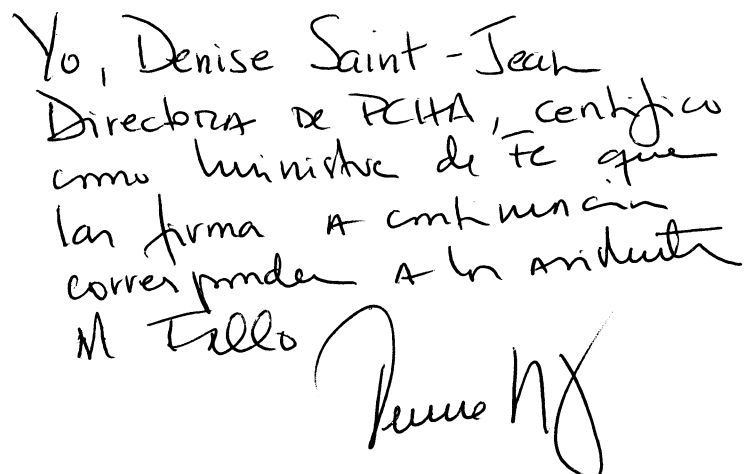 Yo, Denise Saint-Jean
Directora de PCHA, certifico
como ministra de Fe que
las firma a continuación
corresponden a los asistentes
al Fallo